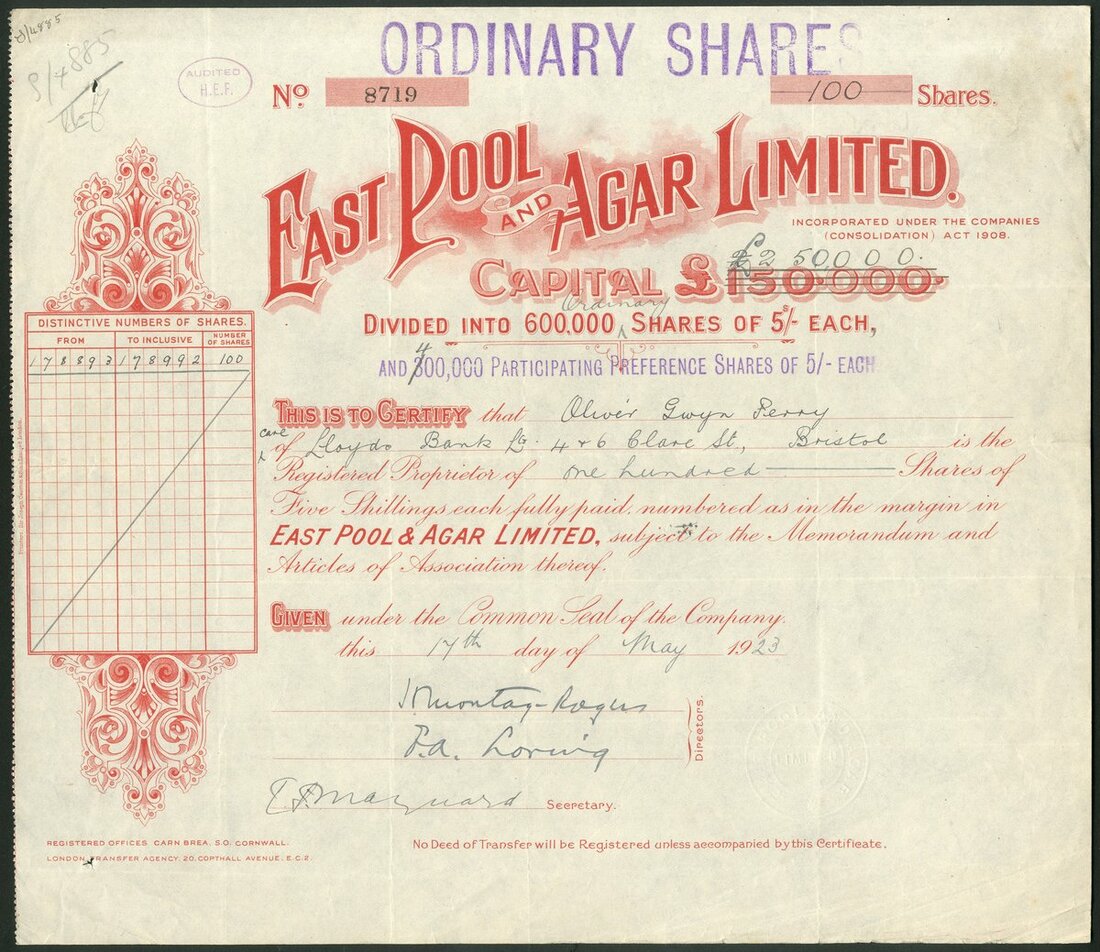 S/4885
S/4885
ORDINARY SHARES
AUDITED
H.E.F.
No. 8719
100 Shares.
EAST POOL AND AGAR LIMITED.
INCORPORATED UNDER THE COMPANIES
(CONSOLIDATION) ACT 1908.
£250000.
CAPITAL £150.000.
Ordinary
DIVIDED INTO 600.000 SHARES OF 5/- EACH,
4
AND 300,000 PARTICIPATING PREFERENCE SHARES OF 5/- EACH
DISTINCTIVE NUMBERS OF SHARES.
FROM TO INCLUSIVE NUMBER OF SHARES
178893 178992 100
THIS IS TO CERTIFY that Oliver Gwyn Perry
care of Lloyds Bank Ld. 4 & 6 Clare St., Bristol is the
Registered Proprietor of one hundred Shares of
Five Shillings each fully paid, numbered as in the margin in
EAST POOL & AGAR LIMITED, subject to the Memorandum and
Articles of Association thereof.
GIVEN under the Common Seal of the Company.
this 17th day of May 1923
J Montag-Rogers
F.A. Loring
Directors.
Maynard Secretary.
REGISTERED OFFICES CARN BREA, S.O. CORNWALL.
LONDON TRANSFER AGENCY. 20, COPTHALL AVENUE, E.C.2.
No Deed of Transfer will be Registered unless accompanied by this Certificate.